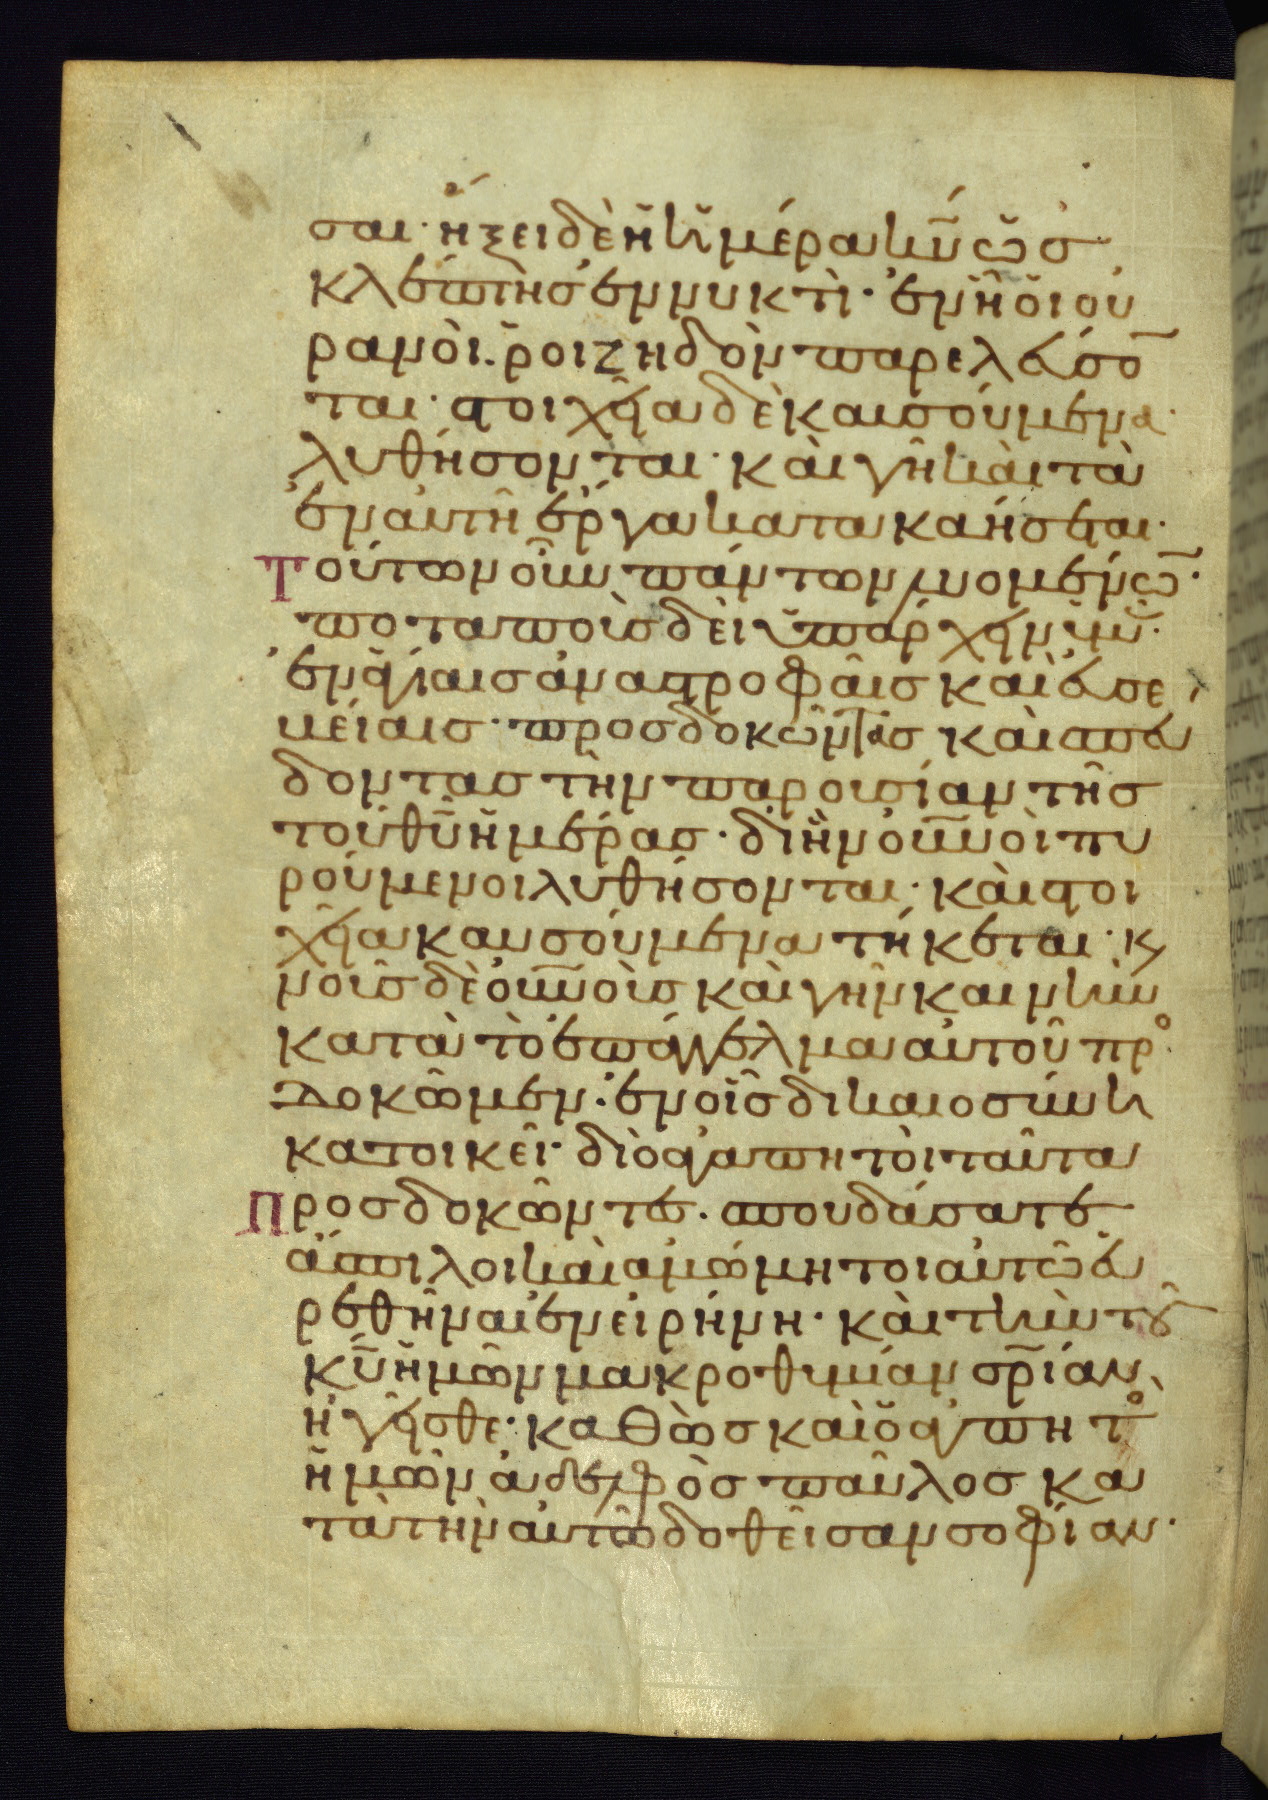 σαι· ἥξει δὲ ἡ ἡμέρα κ̅υ̅ ὡς
κλέπτης ἐν νυκτὶ· ἐν ἧ οἱ οὐ
ρανοὶ. ῥοιζηδὸν παρελεύσο̅
ται· στοιχεῖα δὲ καυσούμενα·
λυθήσονται· καὶ γῆ καὶ τὰ
ἐν αὐτῆ ἔργα κατακαήσεται·
Τούτων οὖν πάντων λυομένω̅·
ποταποὺς δεῖ ὑπάρχειν ὑμ̅·
ἐν ἁγίαις ἀναστροφαῖς καὶ εὐσε
βείαις· προσδοκῶντας καὶ σπεύ
δοντας τὴν παρουσίαν τῆς
τοῦ θ̅υ̅ ἡμέρας· δι ἣν οὐ̅νοὶ πυ
ρούμενοι λυθήσονται· καὶ στοι
χεῖα καυσούμενα τήκεται· κ
νοὺς δὲ οὐ̅νοὺς καὶ γῆν καινὴν
κατὰ τὸ ἐπάγγελμα αὐτοῦ προ
δοκῶμεν· ἐν οἷς δικαιοσύνη
κατοικεῖ· διὸ ἀγαπητοὶ ταῦτα
Προσδοκῶντες· σπουδάσατε
ἄσπιλοι καὶ ἀμώμητοι αὐτῶ εὑ
ρεθῆναι ἐν εἰρήνη· καὶ τὴν τοῦ
κ̅υ̅ ἡμῶν μακροθυμίαν σ̅ρ̅ίαν
ἡγεῖσθε· καθὼς καὶ ὁ ἀγαπητο
ἡμῶν ἀδελφὸς παῦλος κα
τὰ τὴν αὐτῶ δοθεῖσαν σοφίαν·